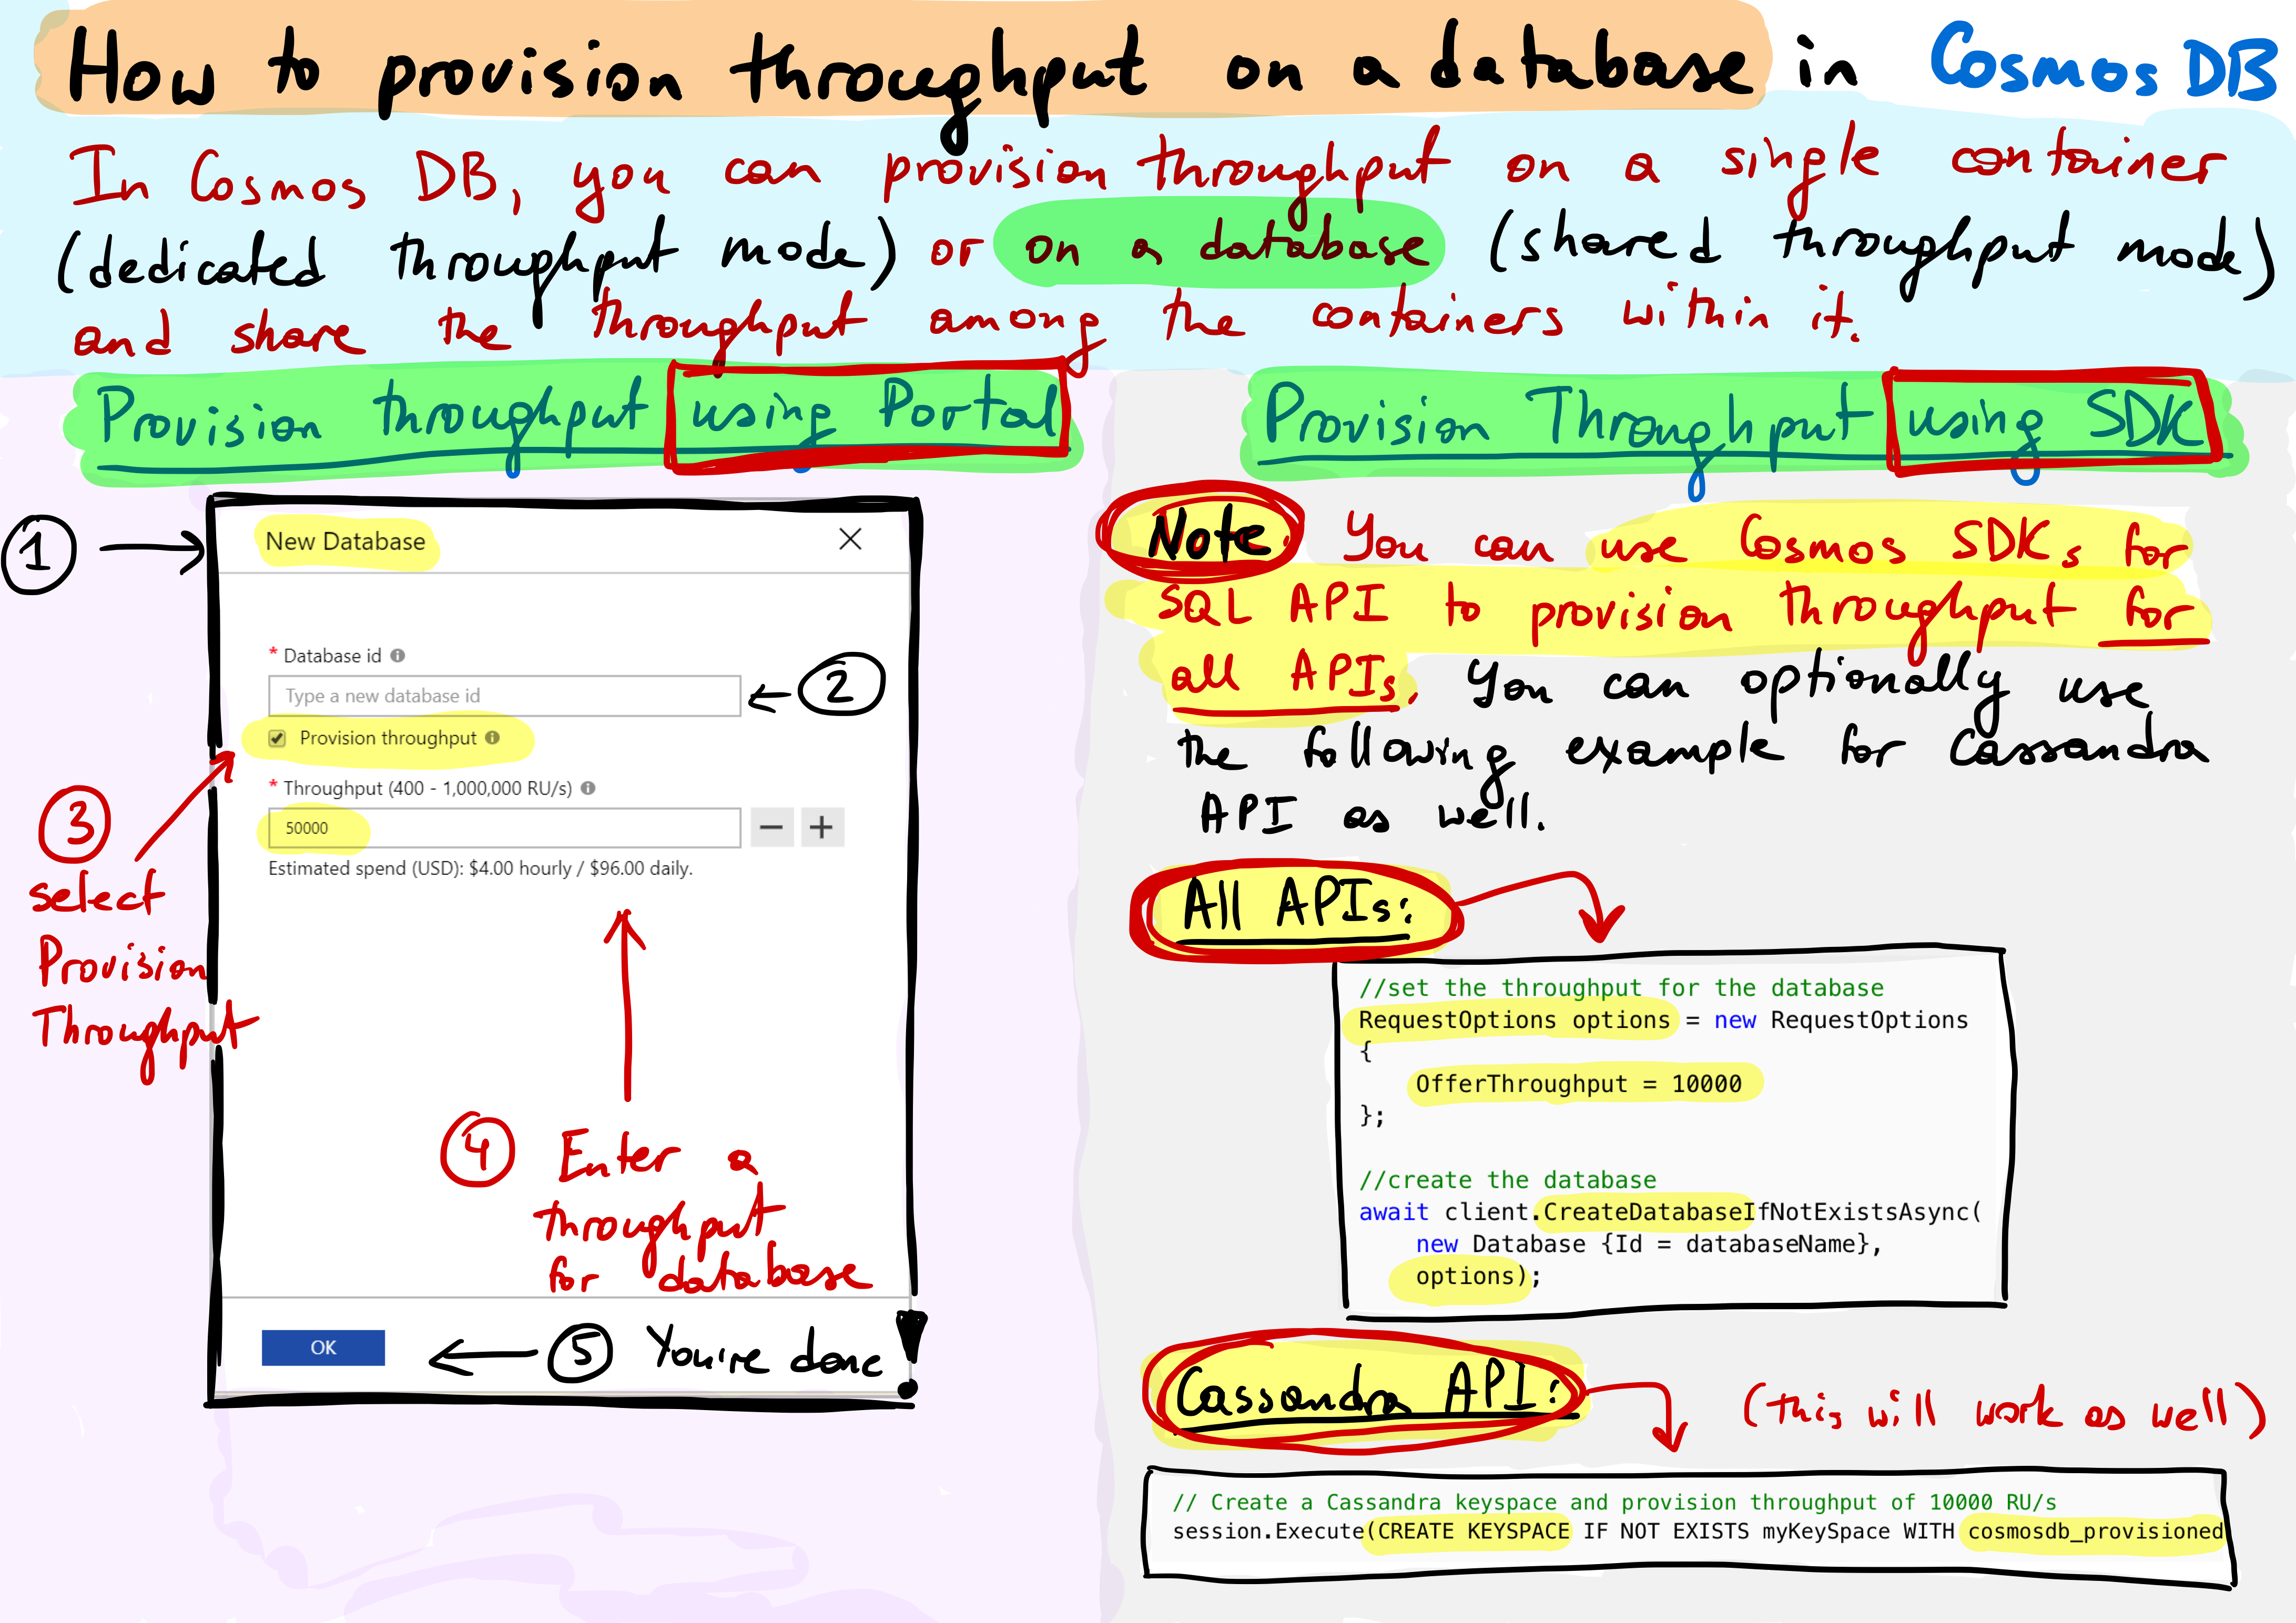 How to provision throughput on a database in Cosmos DB
In Cosmos DB, you can provision throughput on a single container
(dedicated throughput mode) or on a database (shared throughput mode)
and share the throughput among the containers within it.
Provision throughput using Portal
1
New Database
* Database id
Type a new database id
2
Provision throughput
* Throughput (400 - 1,000,000 RU/s)
50000
Estimated spend (USD): $4.00 hourly / $96.00 daily.
3
select
Provision
Throughput
4 Enter a
throughput
for database
OK
5 You're done
Provision Throughput using SDK
Note: You can use Cosmos SDKs for
SQL API to provision throughput for
all APIs. You can optionally use
the following example for Cassandra
API as well.
All APIs:
//set the throughput for the database
RequestOptions options = new RequestOptions
{
OfferThroughput = 10000
};
//create the database
await client.CreateDatabaseIfNotExistsAsync(
new Database {Id = databaseName},
options);
Cassandra API:
(this will work as well)
// Create a Cassandra keyspace and provision throughput of 10000 RU/s
session.Execute(CREATE KEYSPACE IF NOT EXISTS myKeySpace WITH cosmosdb_provisioned